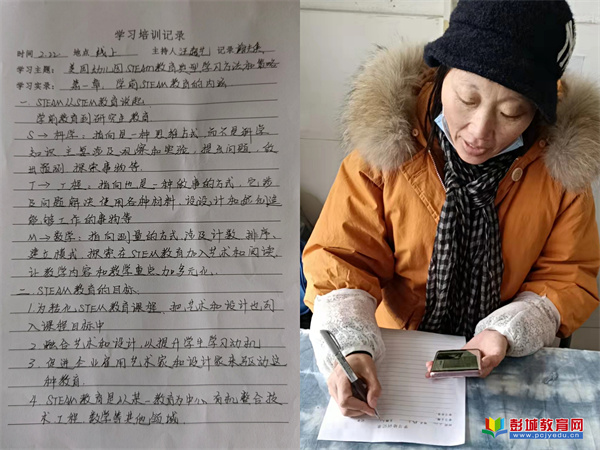 学习培训记录
时间 2.22 地点 线上 主持人 记录
学习主题: 美国幼儿园STEAM教育典型学习方法和策略
学习实录: 第一章: 学前STEAM教育的内涵
一. STEAM从STEM教育说起:
学前教育到研究生教育
S→科学: 指向是一种思维方式,而不只是科学
知识,主要涉及观察和实验,提出问题,做
出预测,探索事物等
T→工程: 指向也是一种做事的方式,它涉
及问题解决,使用各种材料,设计和创造
能够工作的事物等
M→数学: 指向测量的方式,涉及计数、排序、
建立模式,探索在STEM教育加入艺术和阅读,
让数学内容和数学更加多元化.
二. STEAM教育的目标
1. STEM教育课程,把艺术和设计也列
入课程目标中
2. 融合艺术和设计,以提升学生学习动机
3. 促进企业雇用艺术家和设计家来驱动这
种教育.
4. STEAM教育是以某一教育为中心,有机整合技
术、工程、数学等其他领域.
彭城教育网
www.pcjyedu.cn